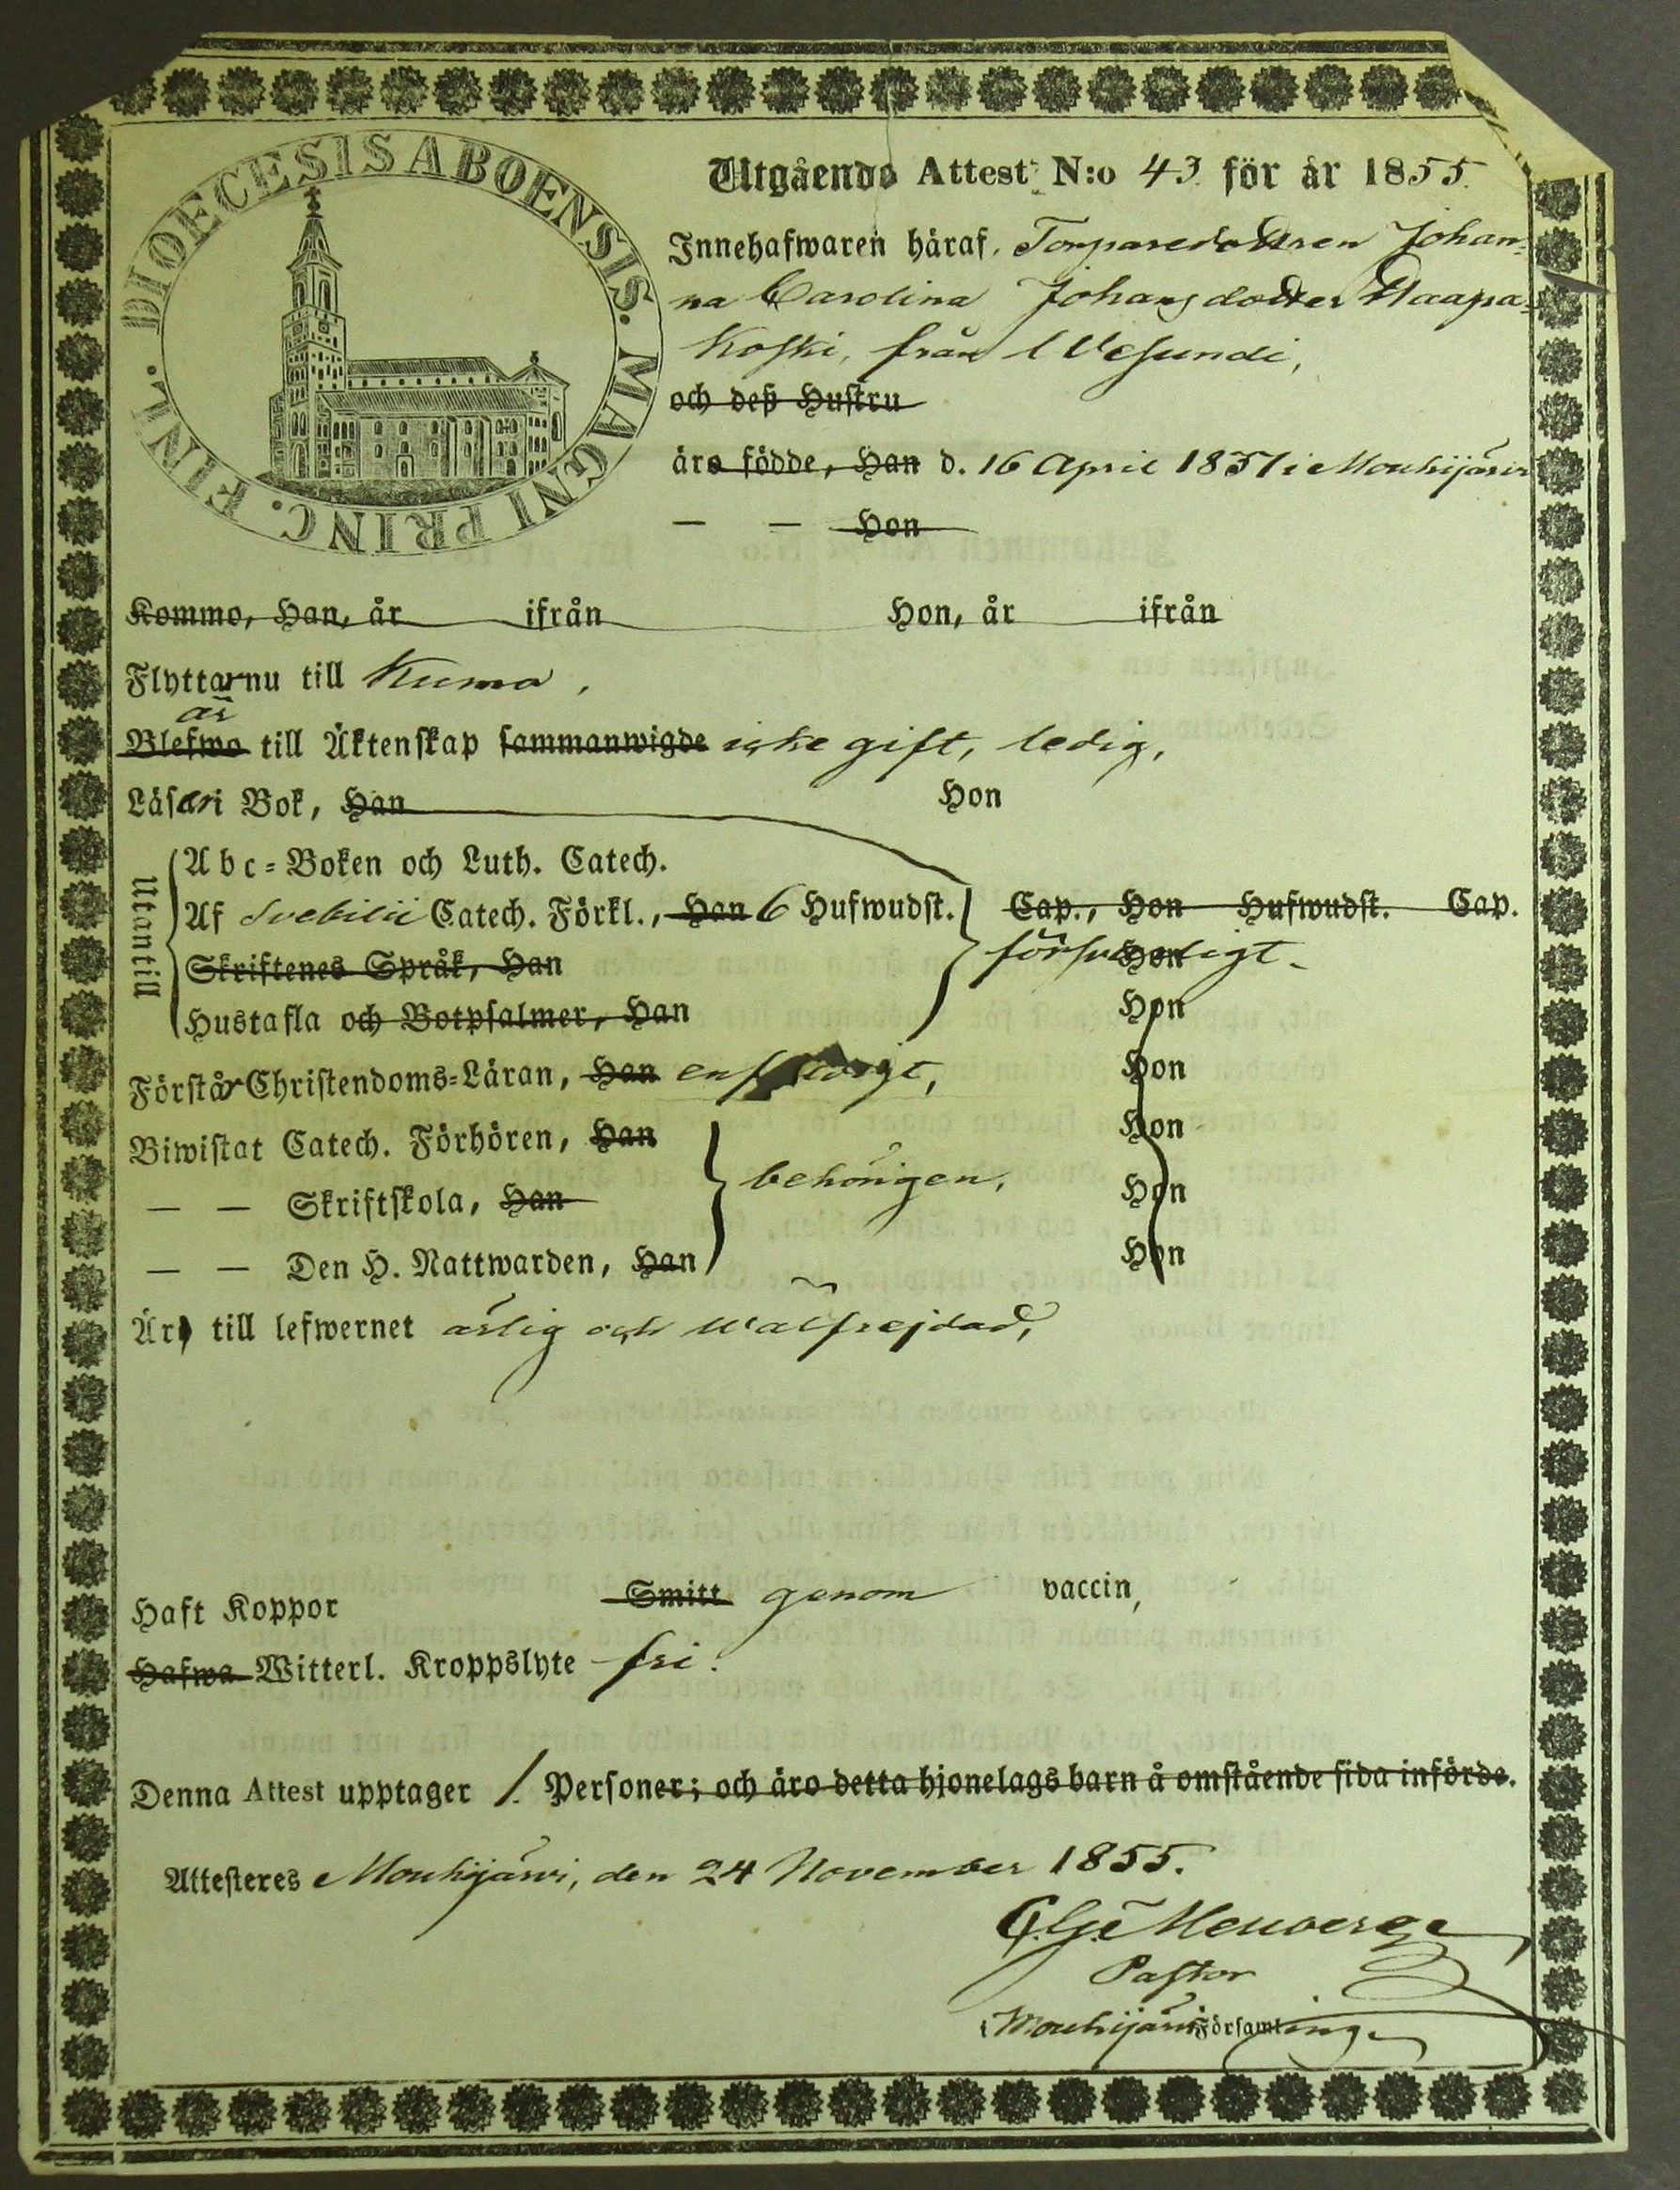 DIOECESIS ABOENSIS. MAGNI PRINC. FINL.
Utgående Attest N:o 43. för år 1855.
Innehafwaren häraf, Torparedottren Johan-
na Carolina Johansdotter Haapa-
koski, från Wesundi,
och deß Hustru
äro födde, Han d. 16 April 1831 i Mouhijärvi
— — Hon
Komme, Han, år ifrån Hon, år ifrån
Flyttar nu till Kumo,
är
Blefwo till Äktenskap sammanwigde icke gift, ledig,
Läser i Bok, Han Hon
Utantill
Abc-Boken och Luth. Catech.
Af Svebilii Catech. Förkl., Han 6 Hufwudst. Cap., Hon Hufwudst. Cap.
Skriftenes Språk, Han försvarligt Hon
Hustafla och Botpsalmer, Han Hon
Förstår Christendoms-Läran, Han Hon
Biwistat Catech. Förhören, Han Hon
— — Skriftskola, Han behörigen, Hon
— — Den H. Nattwarden, Han Hon
Är till lefwernet ärlig och wälfrejdad,
Haft Koppor Smitt genom vaccin,
Hafwa Witterl. Kroppslyte fri.
Denna Attest upptager 1. Personer; och äro detta hjonelags barn å omstående sida införde.
Attesteres Mouhijärvi, den 24 November 1855.
Pastor
i Mouhijärvi Församling